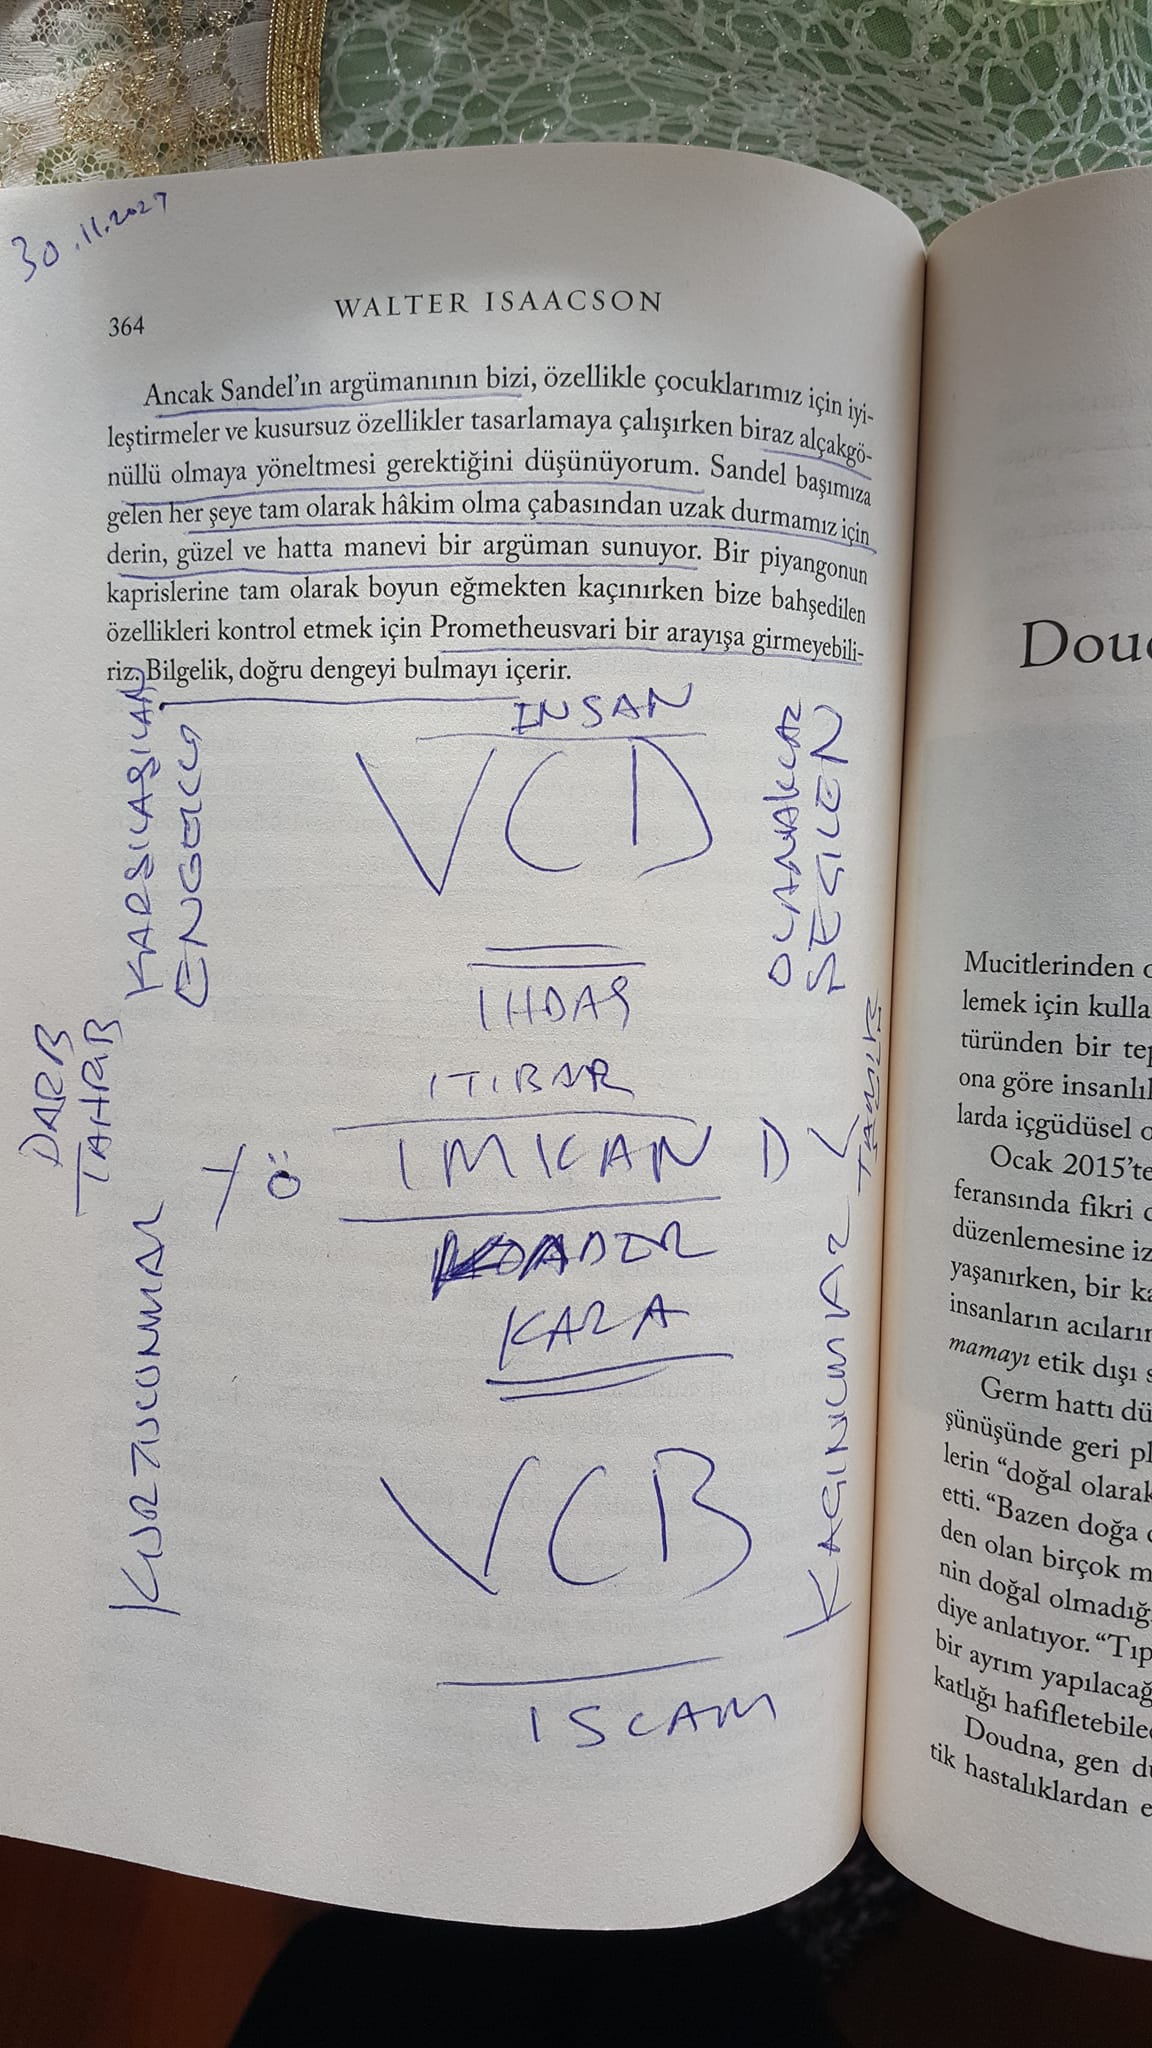 30.11.2027
364
WALTER ISAACSON
Ancak Sandel'ın argümanının bizi, özellikle çocuklarımız için iyi-
leştirmeler ve kusursuz özellikler tasarlamaya çalışırken biraz alçakgö-
nüllü olmaya yöneltmesi gerektiğini düşünüyorum. Sandel başımıza
gelen her şeye tam olarak hâkim olma çabasından uzak durmamız için
derin, güzel ve hatta manevi bir argüman sunuyor. Bir piyangonun
kaprislerine tam olarak boyun eğmekten kaçınırken bize bahşedilen
özellikleri kontrol etmek için Prometheusvari bir arayışa girmeyebili-
riz. Bilgelik, doğru dengeyi bulmayı içerir.
INSAN
VCD
KARŞILAŞILAN
IHDAS
ITIBAR
DARB
TAHRIB
YÖ
IMKAN
KADER
KAZA
VCB
ISLAM
Doud
Mucitlerinden
lemek için kulla
türünden bir tep
ona göre insanlı
larda içgüdüsel
Ocak 2015'te
feransında fikri
düzenlemesine iz
yaşanırken, bir ka
insanların acıların
mamayı etik dışı
Germ hattı dü
şünüşünde geri pl
lerin "doğal olarak
etti. "Bazen doğa
den olan birçok m
nin doğal olmadığ
diye anlatıyor. "Tıp
bir ayrım yapılacağ
katlığı hafifletebile
Doudna, gen dü
tik hastalıklardan e